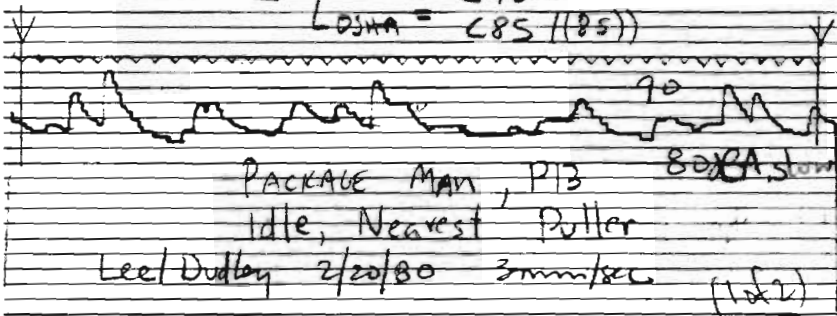 L OSHA = <85 ((85))
90
80dBA, slow
PACKAGE MAN, P13
Idle, Nearest Puller
Lee/Dudley 2/20/80 3mm/sec
(1 of 2)